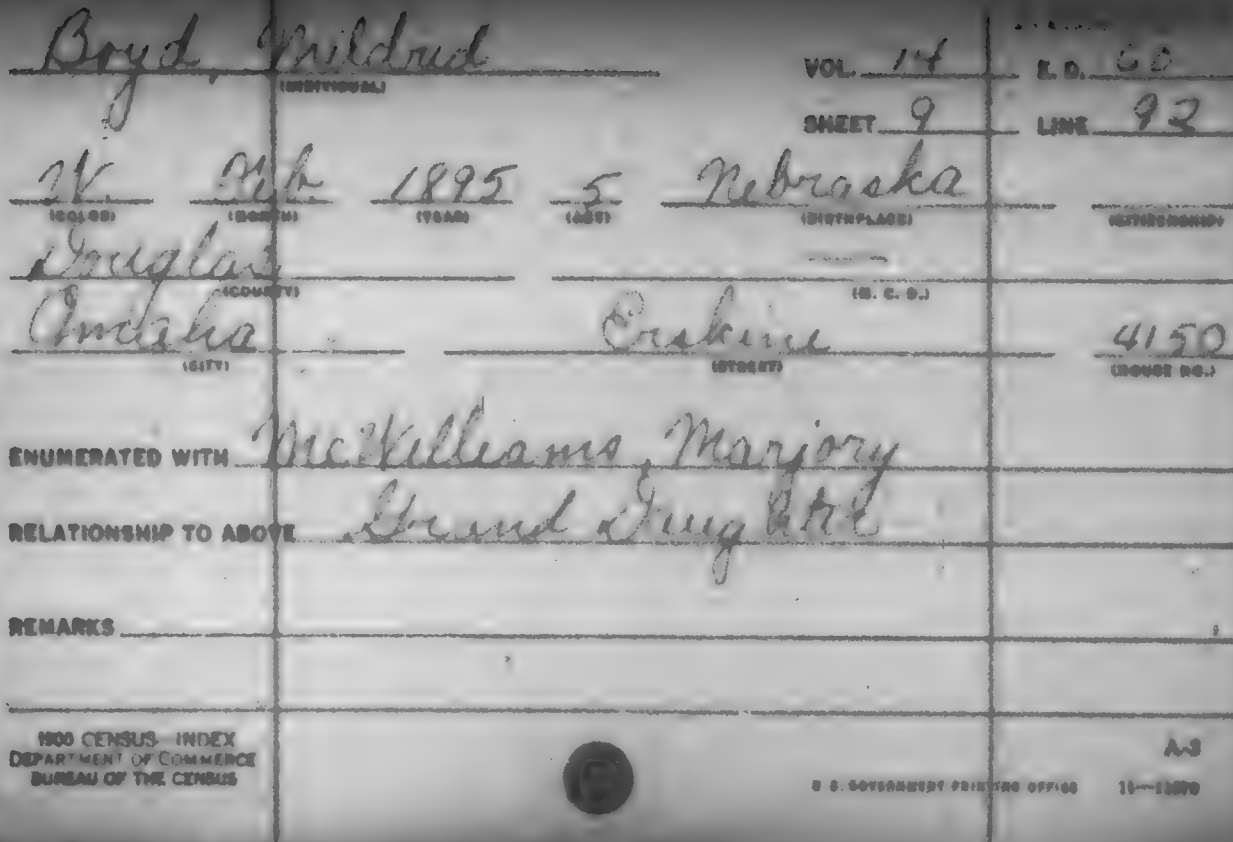 Boyd, Mildred
(INDIVIDUAL)
VOL. 14 E. D. 60
SHEET 9 LINE 92
W. Feb 1895 5 Nebraska
(COLOR) (MONTH) (YEAR) (AGE) (BIRTHPLACE) (CITIZENSHIP)
Douglas —
(COUNTY) (M. C. D.)
Omaha Erskine 4150
(CITY) (STREET) (HOUSE NO.)
ENUMERATED WITH McWilliams, Marjory
RELATIONSHIP TO ABOVE Grand Daughter
REMARKS
1900 CENSUS INDEX
DEPARTMENT OF COMMERCE
BUREAU OF THE CENSUS
A-3
U. S. GOVERNMENT PRINTING OFFICE